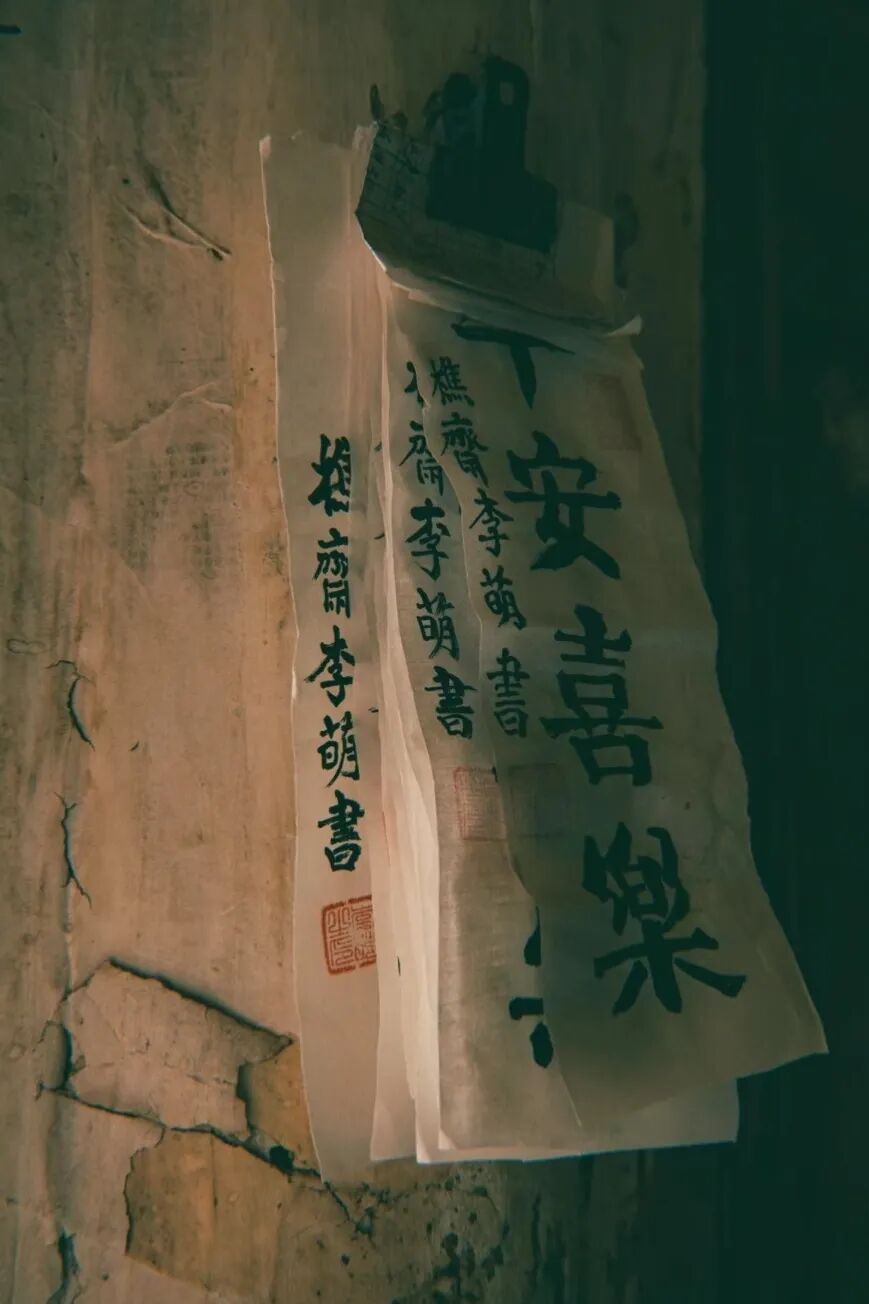 安喜樂
樵齋李萌書
齋李萌書
樵齋李萌書